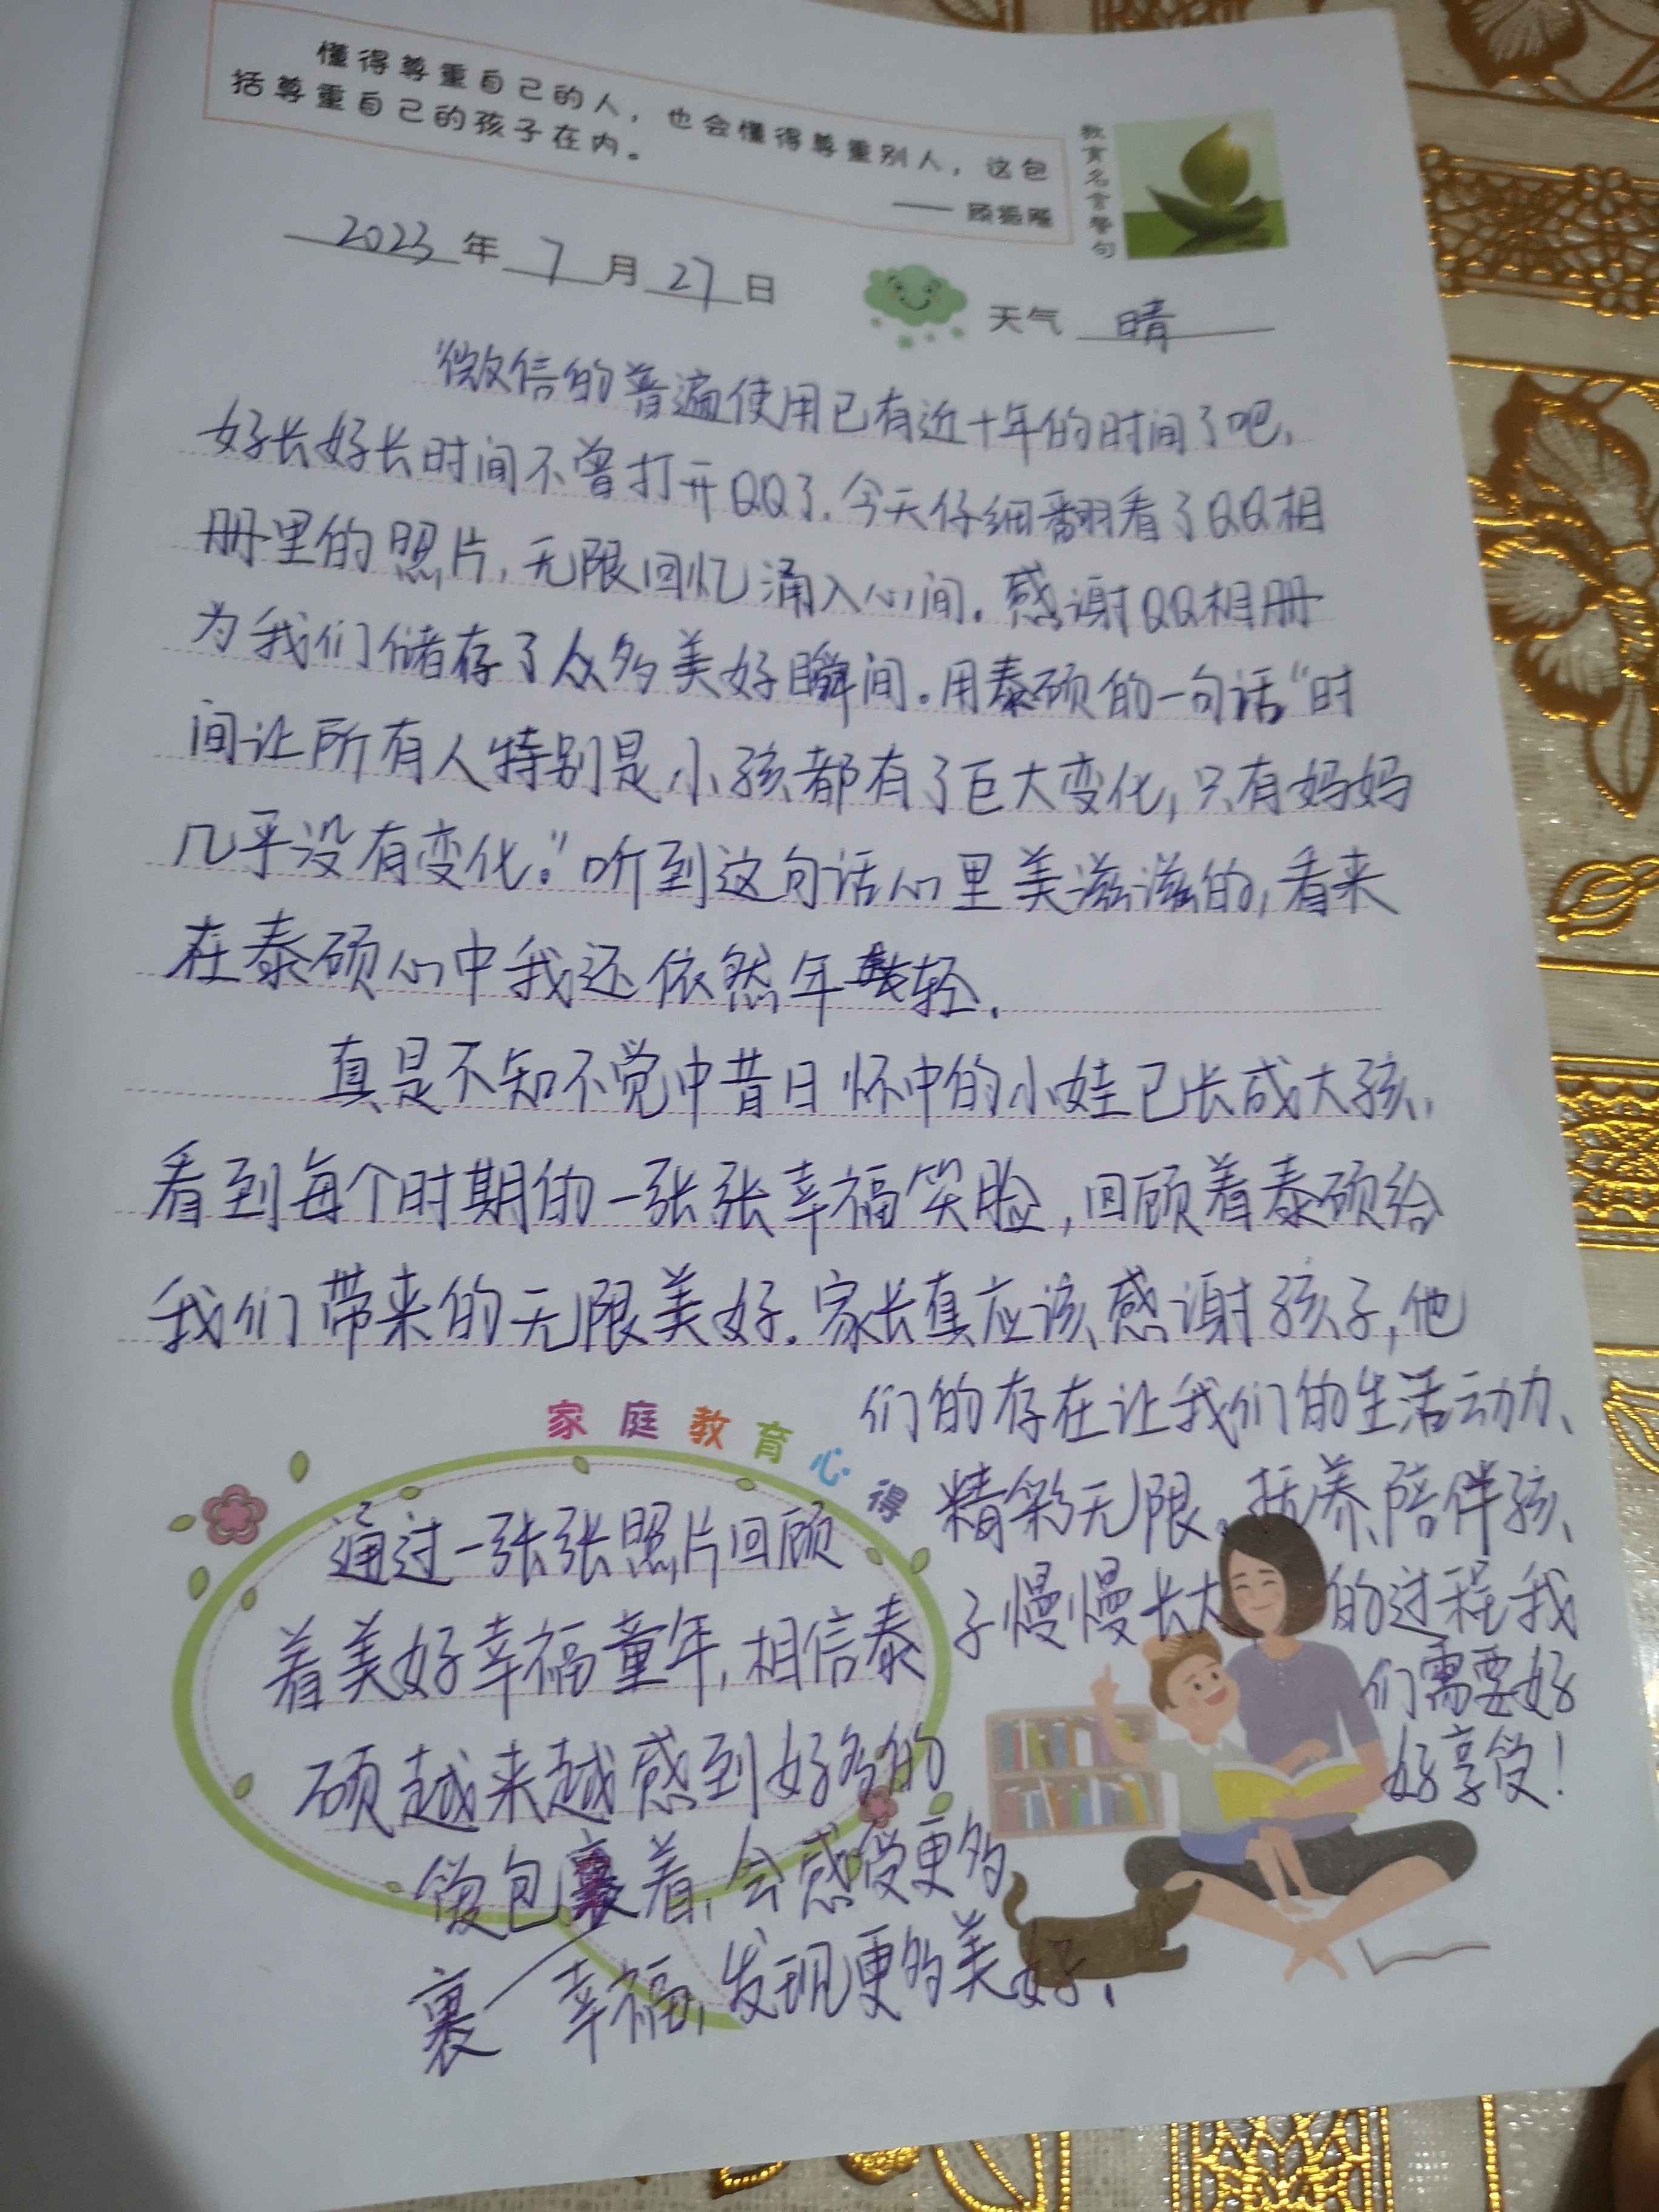 懂得尊重自己的人，也会懂得尊重别人，这包
括尊重自己的孩子在内。
—— 顾振飚
教育名言警句
2023年7月27日
天气 晴
微信的普遍使用已有近十年的时间了吧，
好长好长时间不曾打开QQ了.今天仔细翻看了QQ相
册里的照片,无限回忆涌入心间.感谢QQ相册
为我们储存了众多美好瞬间.用泰硕的一句话“时
间让所有人特别是小孩都有了巨大变化,只有妈妈
几乎没有变化。”听到这句话心里美滋滋的,看来
在泰硕心中我还依然年轻.
真是不知不觉中昔日怀中的小娃已长成大孩,
看到每个时期的一张张幸福笑脸,回顾着泰硕给
我们带来的无限美好.家长真应该感谢孩子,他
们的存在让我们的生活动力、
精彩无限。抚养陪伴孩
子慢慢长大的过程我
们需要好
好享受!
家庭教育心得
通过一张张照片回顾
着美好幸福童年,相信泰
硕越来越感到好多的
爱包裹着,会感受更多
裹 幸福,发现更多美好.